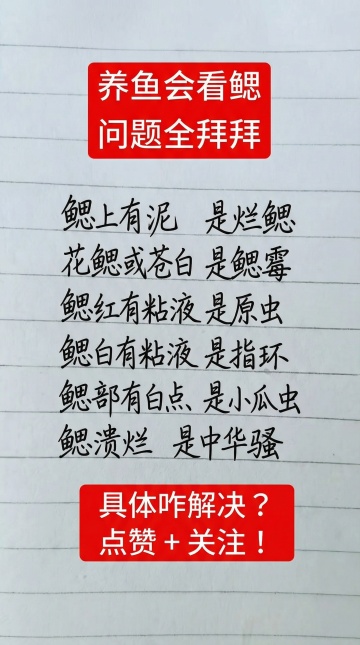 养鱼会看鳃
问题全拜拜
鳃上有泥 是烂鳃
花鳃或苍白 是鳃霉
鳃红有粘液 是原虫
鳃白有粘液 是指环
鳃部有白点 是小瓜虫
鳃溃烂 是中华骚
具体咋解决？
点赞+关注！